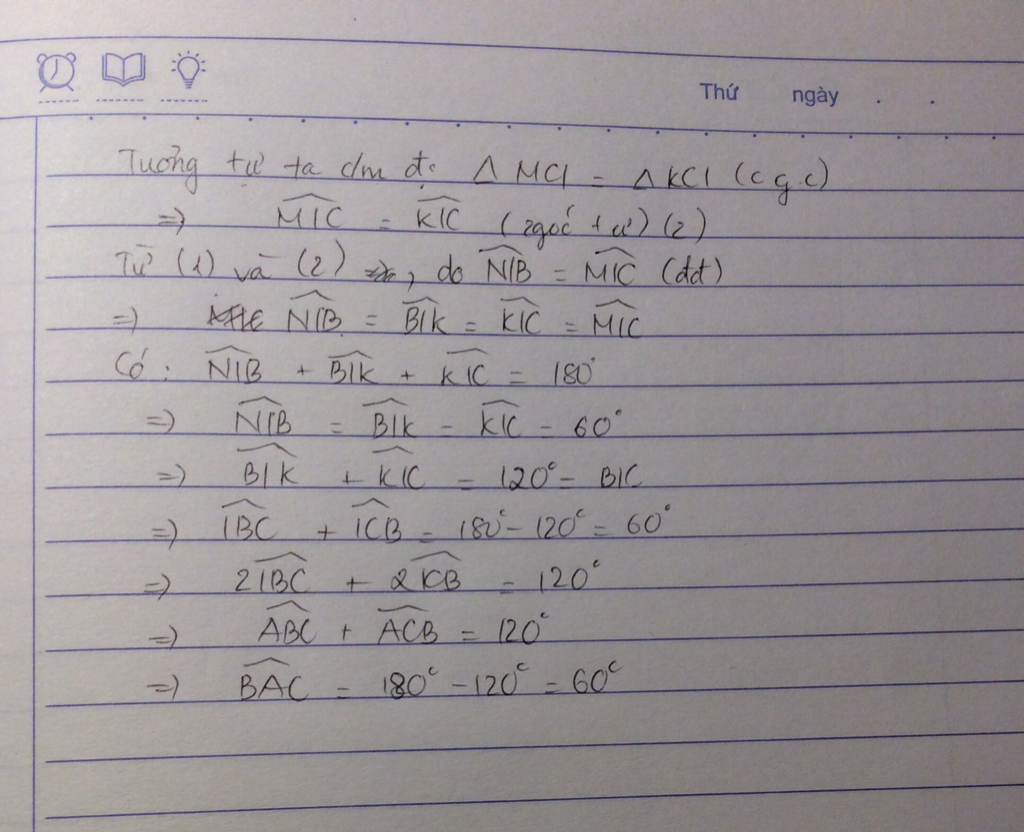 Thứ ngày . .
Tương tự ta c/m đc Δ MCI = Δ KCI (c g.c)
=> \widehat{MIC} = \widehat{KIC} (2góc t ư) (2)
Từ (1) và (2) , do \widehat{NIB} = \widehat{MIC} (đđ)
=> \widehat{NIB} = \widehat{BIK} = \widehat{KIC} = \widehat{MIC}
Có : \widehat{NIB} + \widehat{BIK} + \widehat{KIC} = 180°
=> \widehat{NIB} = \widehat{BIK} = \widehat{KIC} = 60°
=> \widehat{BIK} + \widehat{KIC} = 120° = BIC
=> \widehat{IBC} + \widehat{ICB} = 180° - 120° = 60°
=> 2\widehat{IBC} + 2\widehat{ICB} = 120°
=> \widehat{ABC} + \widehat{ACB} = 120°
=> \widehat{BAC} = 180° - 120° = 60°